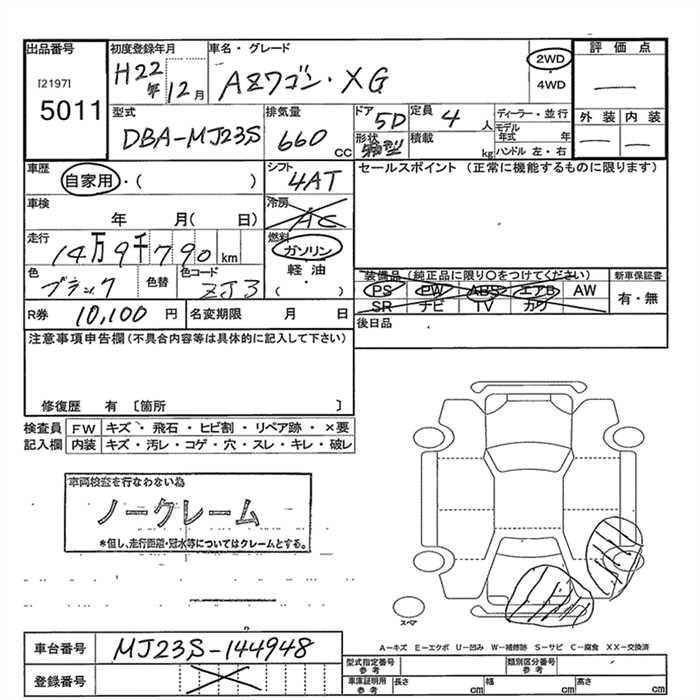 出品番号
[2197]
5011
初度登録年月
H22年12月
車名・グレード
AZワゴン・XG
2WD
・
4WD
評価点
―
外装 内装
― ―
型式
DBA-MJ23S
排気量
660 CC
ドア
5D
形状
箱型
定員
4 人
積載
kg
ディーラー・並行
モデル年式 年
ハンドル 左・右
車歴
自家用・( )
シフト
4AT
セールスポイント (正常に機能するものに限ります)
車検
年 月( 日)
冷房
AC
走行
14万9千790 km
燃料
ガソリン
軽油
( )
色
ブラック
色替
色コード
ZJ3
装備品(純正品に限り○をつけてください)
PS PW ABS エアB AW
SR ナビ TV カワ
新車保証書
有・無
R券 10,100 円
名変期限 月 日
後日品
注意事項申告欄(不具合内容等は具体的に記入して下さい)
修復歴 有 〔箇所 〕
検査員 FW キズ・飛石・ヒビ割・リペア跡・×要
記入欄 内装 キズ・汚レ・コゲ・穴・スレ・キレ・破レ
車両検査を行なわない為
ノークレーム
*但し、走行距離・冠水等についてはクレームとする。
スペア
A−キズ E−エクボ U−凹み W−補修跡 S−サビ C−腐食 XX−交換済
車台番号 MJ23S-144948
登録番号
型式指定番号
参考
類別区分番号
参考
車庫証明用
参考
長さ cm 幅 cm 高さ cm